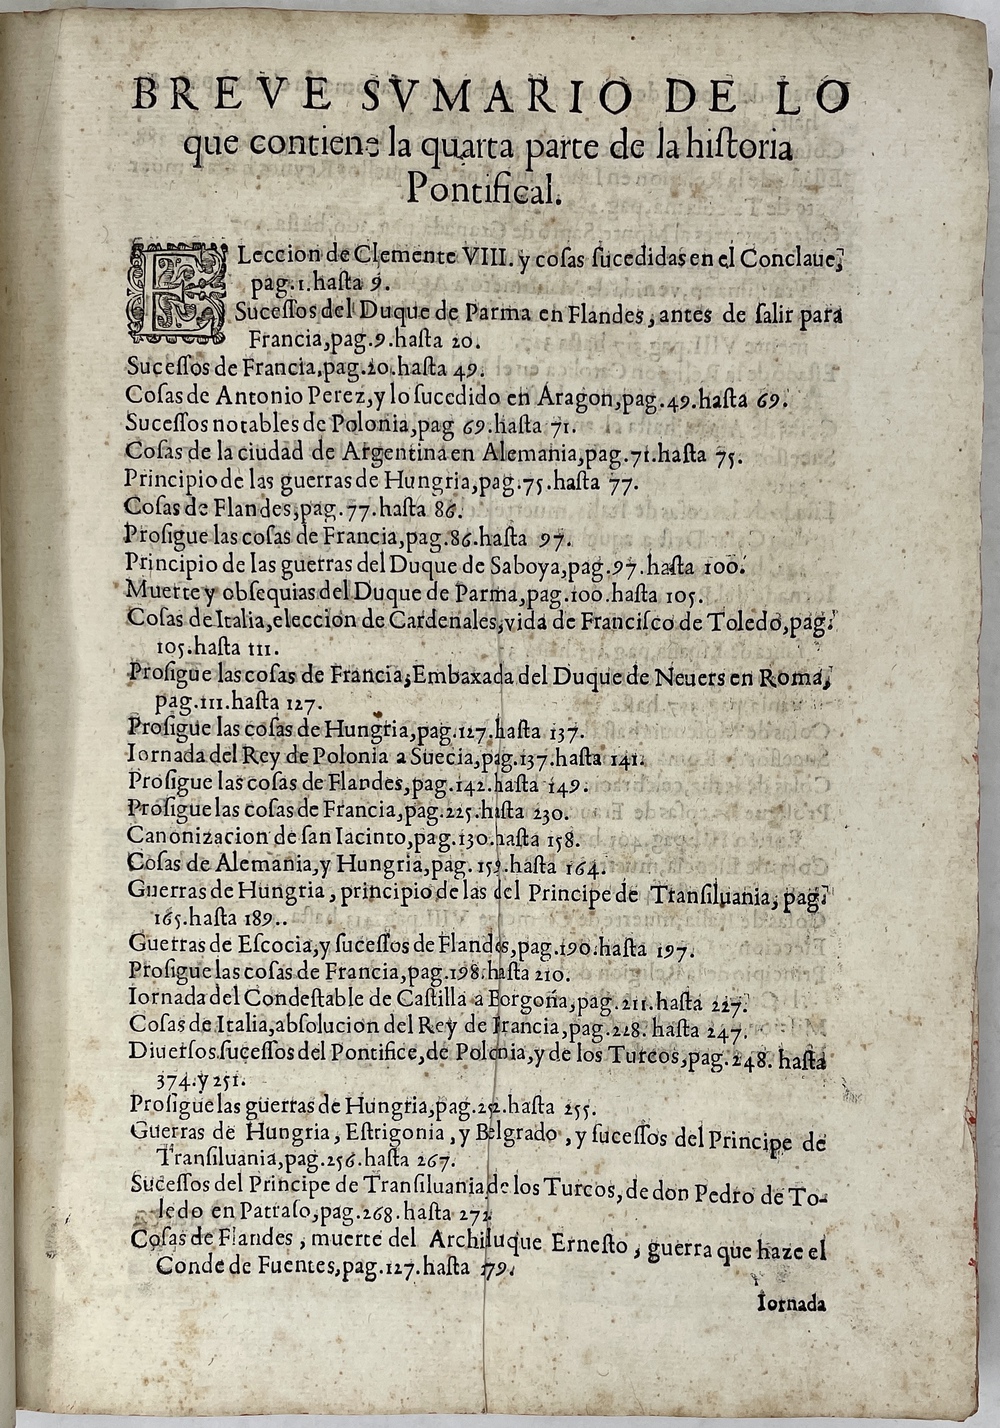 BREVE SVMARIO DE LO
que contiene la quarta parte de la hiſtoria
Pontifical.
ELeccion de Clemente VIII. y coſas ſucedidas en el Conclaue,
pag.1.haſta 9.
Suceſſos del Duque de Parma en Flandes, antes de ſalir para
Francia,pag.9.haſta 20.
Suceſſos de Francia,pag.20.haſta 49.
Coſas de Antonio Perez,y lo ſucedido en Aragon,pag.49.haſta 69.
Suceſſos notables de Polonia,pag 69.haſta 71.
Coſas de la ciudad de Argentina en Alemania,pag.71.haſta 75.
Principio de las guerras de Hungria,pag.75.haſta 77.
Coſas de Flandes,pag.77.haſta 86.
Proſigue las coſas de Francia,pag.86.haſta 97.
Principio de las guerras del Duque de Saboya,pag.97.haſta 100.
Muerte y obſequias del Duque de Parma,pag.100.haſta 105.
Coſas de Italia,eleccion de Cardenales,vida de Franciſco de Toledo,pag.
105.haſta 111.
Proſigue las coſas de Francia,Embaxada del Duque de Neuers en Roma,
pag.111.haſta 127.
Proſigue las coſas de Hungria,pag.127.haſta 137.
Iornada del Rey de Polonia a Suecia,pag.137.haſta 141.
Proſigue las coſas de Flandes,pag.142.haſta 149.
Proſigue las coſas de Francia,pag.225.haſta 230.
Canonizacion de ſan Iacinto,pag.130.haſta 158.
Coſas de Alemania,y Hungria,pag.159.haſta 164.
Guerras de Hungria, principio de las del Principe de Tranſiluania, pag.
165.haſta 189..
Guerras de Eſcocia,y ſuceſſos de Flandes,pag.190.haſta 197.
Proſigue las coſas de Francia,pag.198.haſta 210.
Iornada del Condeſtable de Caſtilla a Borgoña,pag.211.haſta 227.
Coſas de Italia,abſolucion del Rey de Francia,pag.228. haſta 247.
Diuerſos ſuceſſos del Pontifice,de Polonia,y de los Turcos,pag.248. haſta
374.y 251.
Proſigue las guerras de Hungria,pag.252.haſta 255.
Guerras de Hungria, Eſtrigonia, y Belgrado, y ſuceſſos del Principe de
Tranſiluania,pag.256.haſta 267.
Suceſſos del Principe de Tranſiluania de los Turcos, de don Pedro de To-
ledo en Patraſo,pag.268.haſta 272
Coſas de Flandes, muerte del Archiduque Erneſto, guerra que haze el
Conde de Fuentes,pag.127.haſta 179.
Iornada